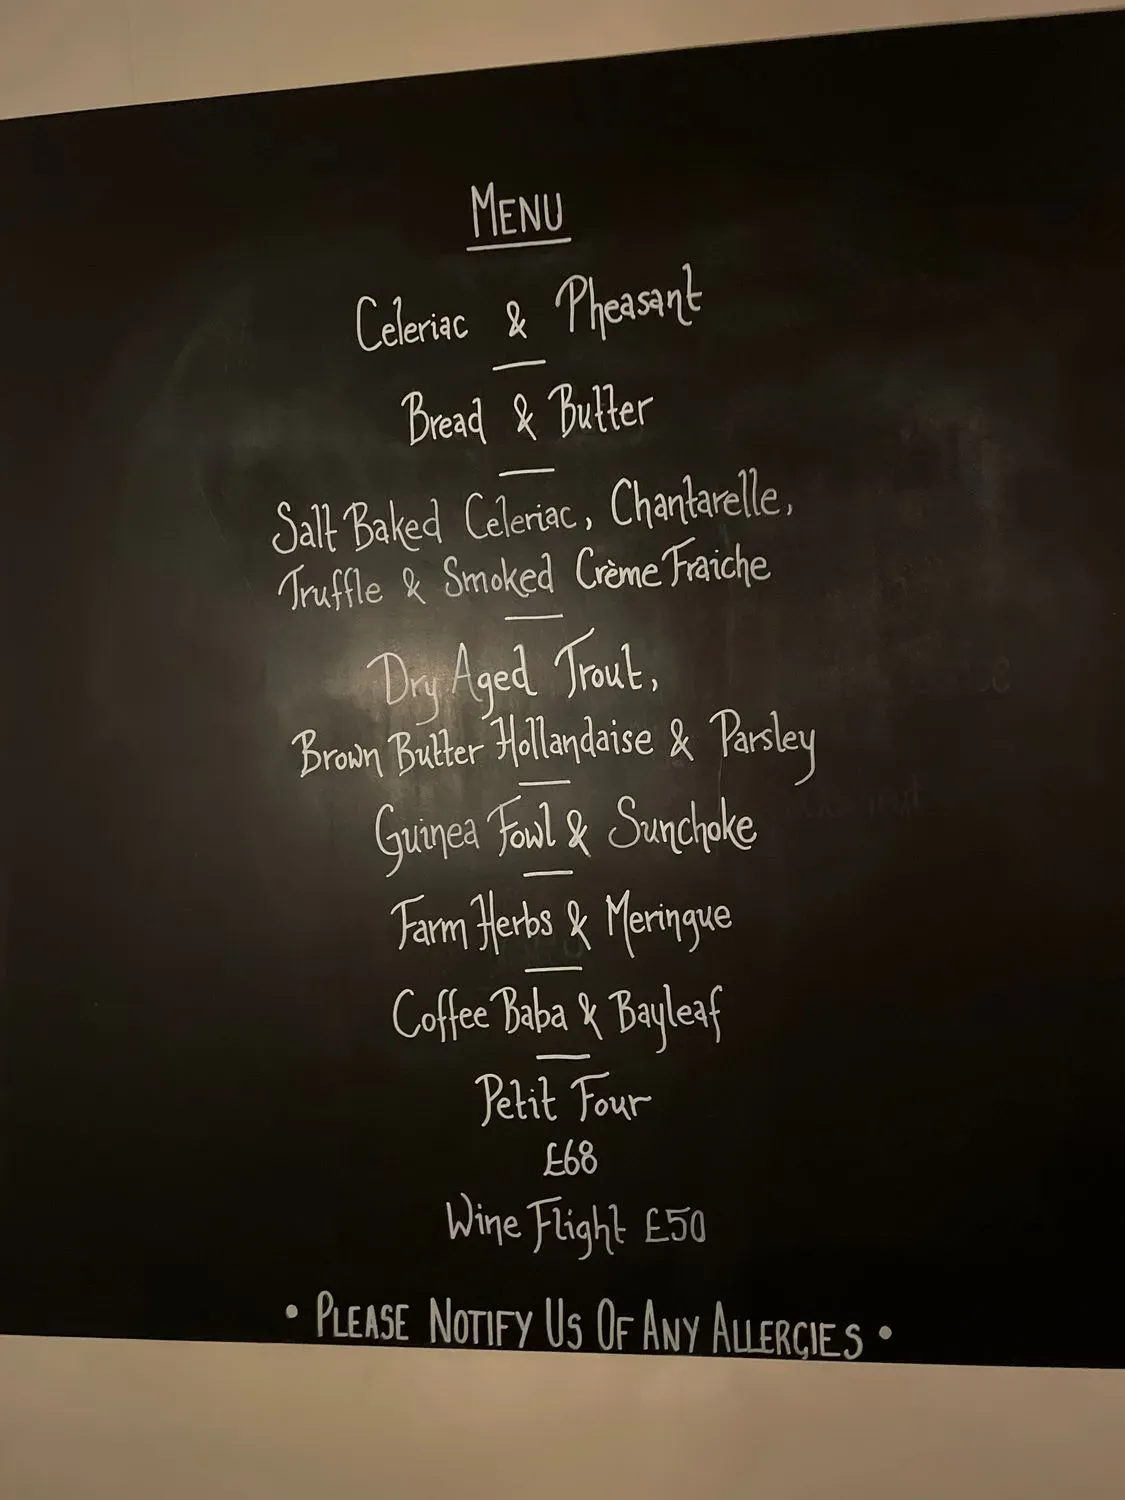 MENU
Celeriac & Pheasant
Bread & Butter
Salt Baked Celeriac, Chantarelle,
Truffle & Smoked Crème Fraiche
Dry Aged Trout,
Brown Butter Hollandaise & Parsley
Guinea Fowl & Sunchoke
Farm Herbs & Meringue
Coffee Baba & Bayleaf
Petit Four
£68
Wine Flight £50
• PLEASE NOTIFY US OF ANY ALLERGIES •